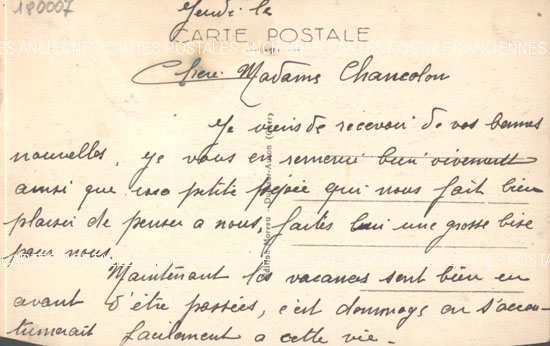 180007
Jeudi le
CARTE POSTALE
CARTES POSTALES ANCIENNES
Chere Madame Chancolon
Je viens de recevoir de vos bonnes
nouvelles, je vous en remerci bien vivement
ainsi que vos petite qui nous fait bien
plaisir de penser a nous, faites lui une grosse bise
pour nous.
Maintenant les vacances sont bien en
avant d'être passées, c'est dommage on s'accou-
tumerait facilement a cette vie.
Edition Moreau (Cher)